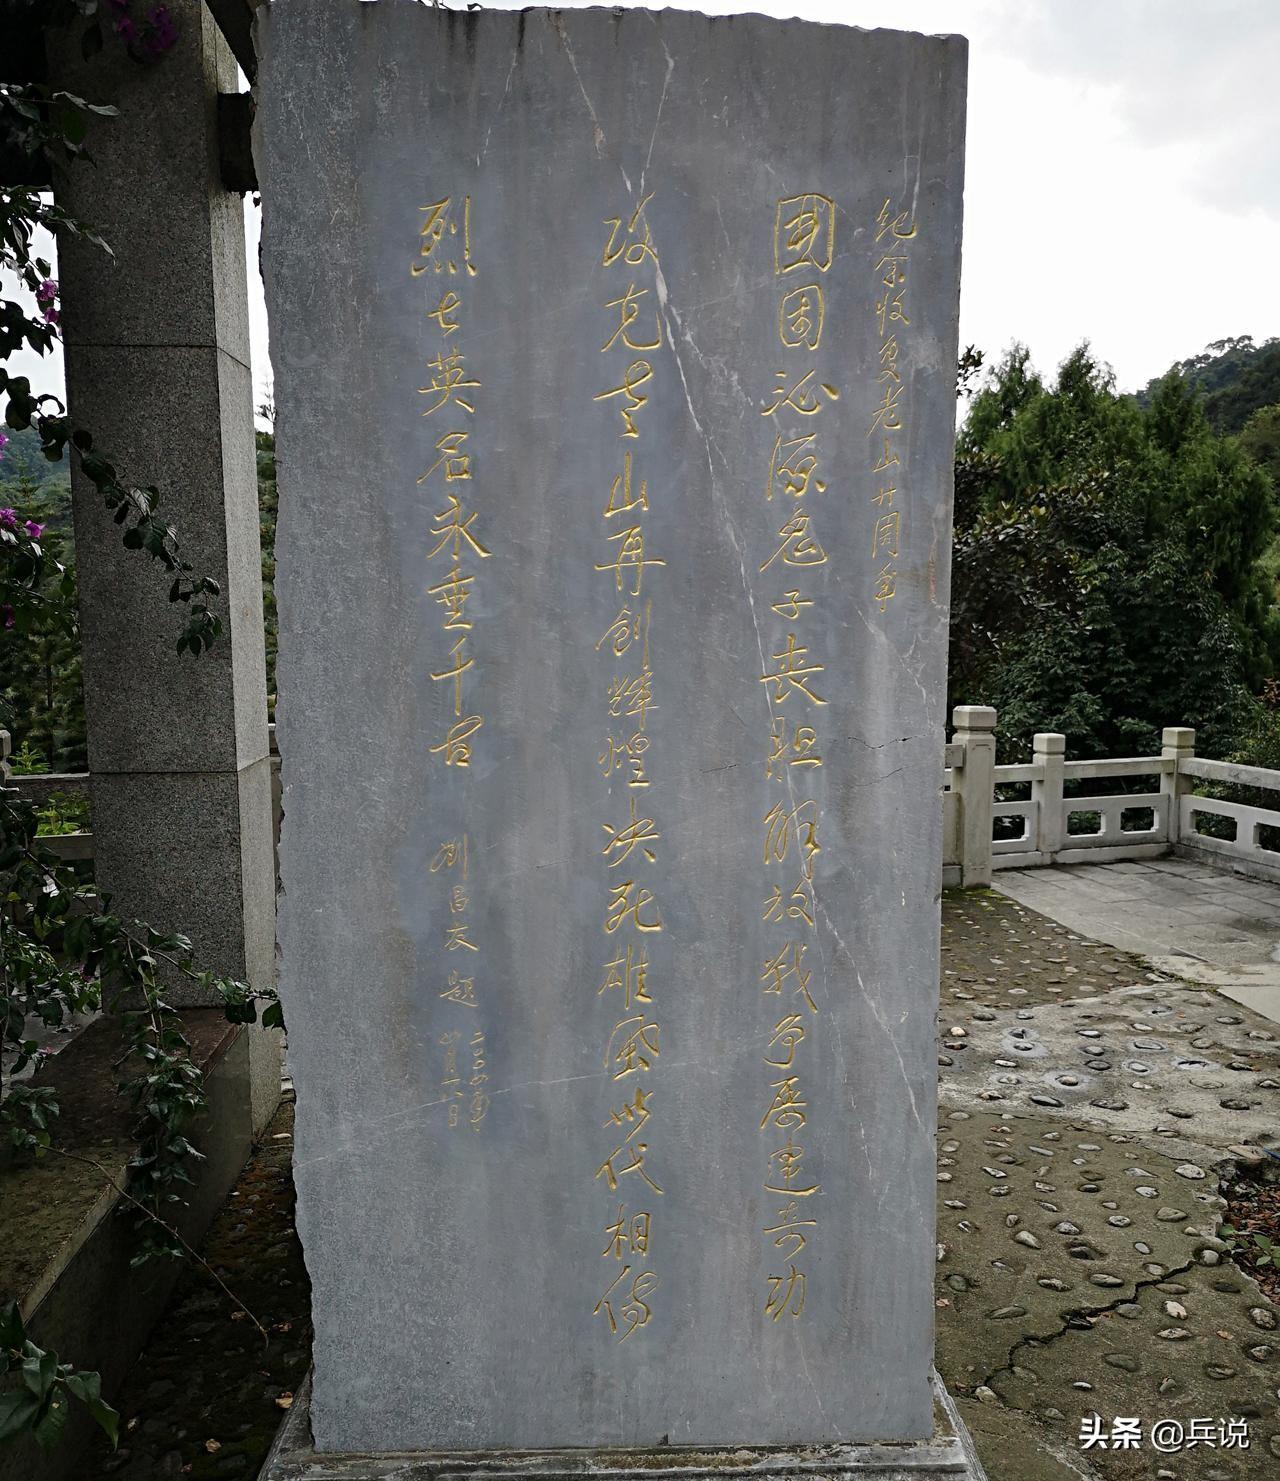 纪念收复老山廿周年
围困沁源鬼子丧胆解放战争屡建奇功
攻克老山再创辉煌决死雄风世代相传
烈士英名永垂千古
刘昌友题
二〇〇四年
四月二八日
头条 @兵说